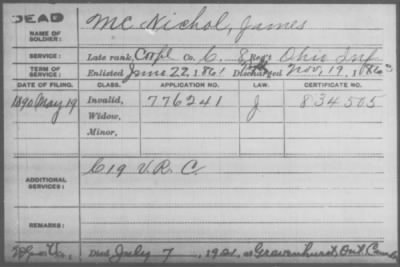 DEAD
NAME OF SOLDIER: McNichol, James
SERVICE: Late rank, Corpl Co. C, 8 Reg't Ohio Inf
TERM OF SERVICE: Enlisted June 22, 1861 Discharged Nov. 19, 186
DATE OF FILING. CLASS. APPLICATION NO. LAW. CERTIFICATE NO.
1890 May 19 Invalid, 776241 J 834505
Widow,
Minor,
ADDITIONAL SERVICES: C 19 V.R.C.
REMARKS:
Died July 7, 1921, at Gravenhurst Ont